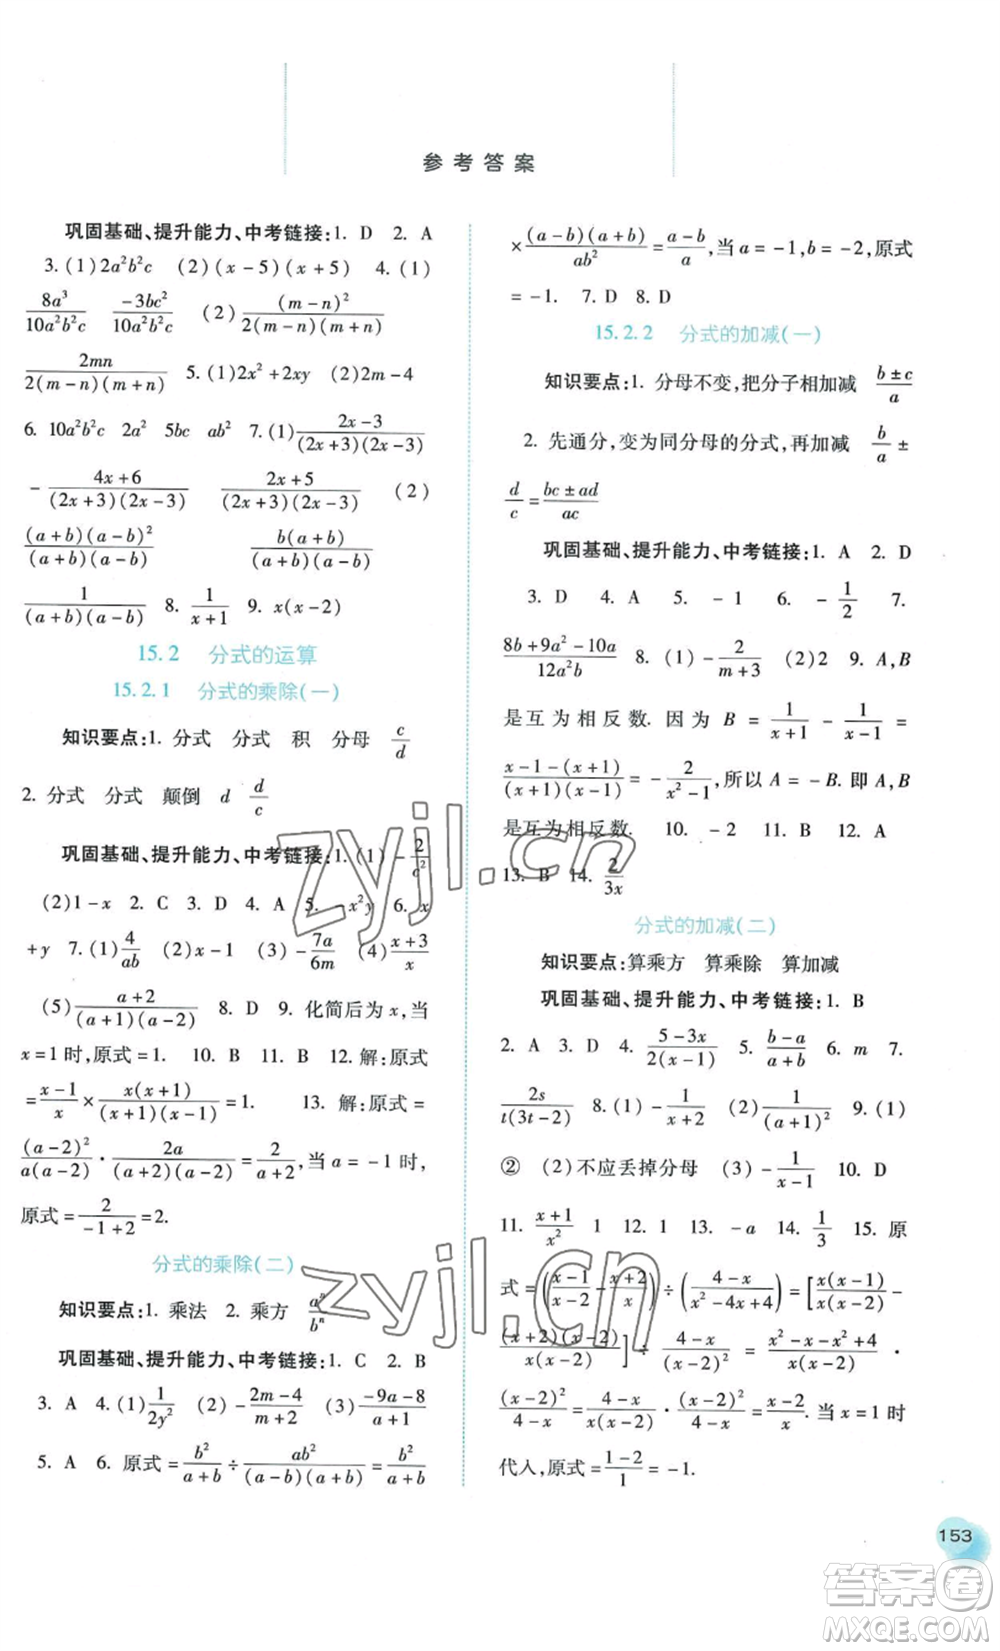 参考答案
巩固基础、提升能力、中考链接:1. D 2. A
3. (1)2a²b²c (2)(x-5)(x+5) 4. (1)
8a³/10a²b²c -3bc²/10a²b²c (2) (m-n)²/2(m-n)(m+n)
2mn/2(m-n)(m+n) 5. (1)2x²+2xy (2)2m-4
6. 10a²b²c 2a² 5bc ab² 7. (1) 2x-3/(2x+3)(2x-3)
- 4x+6/(2x+3)(2x-3) 2x+5/(2x+3)(2x-3) (2)
(a+b)(a-b)²/(a+b)(a-b) b(a+b)/(a+b)(a-b)
1/(a+b)(a-b) 8. 1/x+1 9. x(x-2)
15.2 分式的运算
15.2.1 分式的乘除(一)
知识要点:1. 分式 分式 积 分母 c/d
2. 分式 分式 颠倒 d d/c
巩固基础、提升能力、中考链接:1. (1)-2/c²
(2)1-x 2. C 3. D 4. A 5. -x²y 6. x
+y 7. (1)4/ab (2)x-1 (3)-7a/6m (4)x+3/x
(5) a+2/(a+1)(a-2) 8. D 9. 化简后为 x,当
x=1时,原式=1. 10. B 11. B 12. 解:原式
=x-1/x×x(x+1)/(x+1)(x-1)=1. 13. 解:原式=
(a-2)²/a(a-2)·2a/(a+2)(a-2)=2/a+2,当 a=-1时,
原式=2/-1+2=2.
分式的乘除(二)
知识要点:1. 乘法 2. 乘方 aⁿ/bⁿ
巩固基础、提升能力、中考链接:1. C 2. B
3. A 4. (1)1/2y² (2)-2m-4/m+2 (3)-9a-8/a+1
5. A 6. 原式=b²/a+b÷ab²/(a-b)(a+b)=b²/a+b
×(a-b)(a+b)/ab²=a-b/a,当a=-1,b=-2,原式
=-1. 7. D 8. D
15.2.2 分式的加减(一)
知识要点:1. 分母不变,把分子相加减 b±c/a
2. 先通分,变为同分母的分式,再加减 b/a±
d/c=bc±ad/ac
巩固基础、提升能力、中考链接:1. A 2. D
3. D 4. A 5. -1 6. -1/2 7.
8b+9a²-10a/12a²b 8. (1)-2/m+3 (2)2 9. A,B
是互为相反数. 因为 B=1/x+1-1/x-1=
x-1-(x+1)/(x+1)(x-1)=-2/x²-1,所以 A=-B. 即 A,B
是互为相反数. 10. -2 11. B 12. A
13. B 14. 2/3x
分式的加减(二)
知识要点:算乘方 算乘除 算加减
巩固基础、提升能力、中考链接:1. B
2. A 3. D 4. 5-3x/2(x-1) 5. b-a/a+b 6. m 7.
2s/t(3t-2) 8. (1)-1/x+2 (2)1/(a+1)² 9. (1)
② (2)不应丢掉分母 (3)-1/x-1 10. D
11. x+1/x² 1 12. 1 13. -a 14. 1/3 15. 原
式=(x-1/x-2-x+2/x)÷(4-x/x²-4x+4)=[x(x-1)/x(x-2)-
(x+2)(x-2)/x(x-2)]÷4-x/(x-2)²=x²-x-x²+4/x(x-2)·
(x-2)²/4-x=4-x/x(x-2)·(x-2)²/4-x=x-2/x. 当x=1时
代人,原式=1-2/1=-1.
153
zyjl.cn
zyjl.cn
答案圈
MXQE.COM